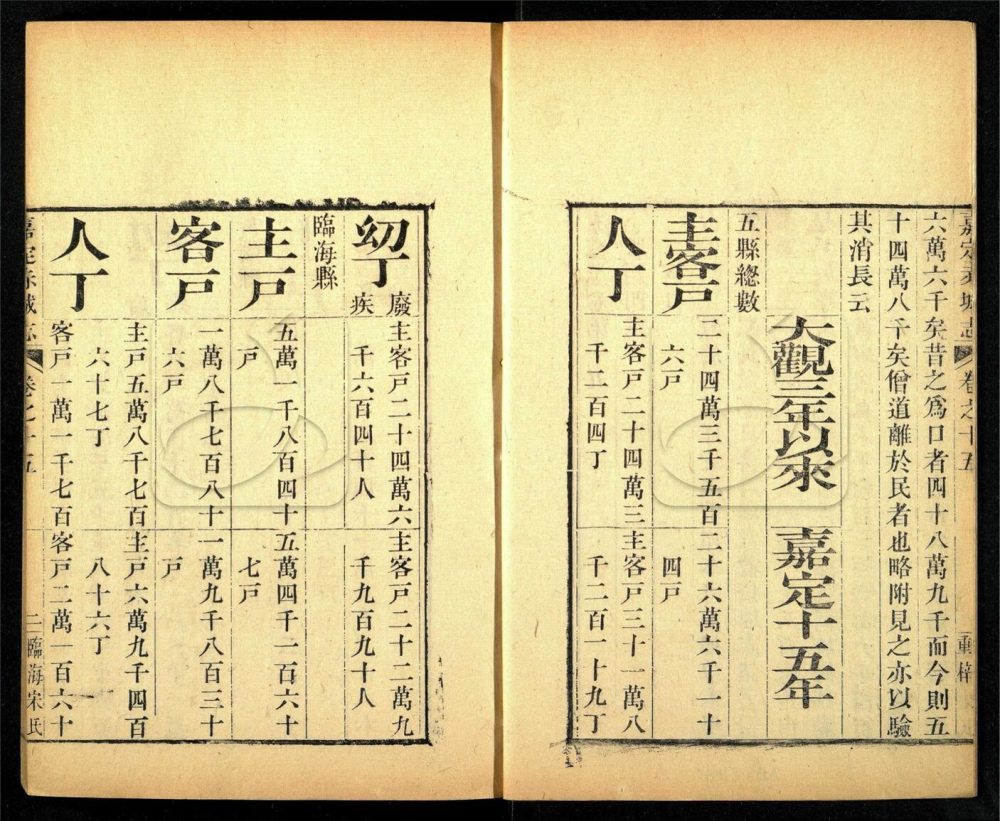 嘉定赤城志 卷之十五 重梓
六萬六千矣昔之爲口者四十八萬九千而今則五
十四萬八千矣僧道離於民者也略附見之亦以驗
其消長云
大觀三年以來 嘉定十五年
五縣總數
主客戸 二十四萬三千五百六戸 二十六萬六千一十四戸
人丁 主客戸二十四萬三千二百四丁 主客戸三十一萬八千二百一十九丁
幼丁 廢疾 主客戸二十四萬六千六百四十人 主客戸二十二萬九千九百九十人
臨海縣
主戸 五萬一千八百四十戸 五萬四千一百六十七戸
客戸 一萬八千七百八十六戸 一萬九千八百三十戸
人丁 主戸五萬八千七百六十七丁 主戸六萬九千四百八十六丁
客戸一萬一千七百 客戸二萬一百六十
嘉定赤城志 卷之十五 二 臨海宋氏